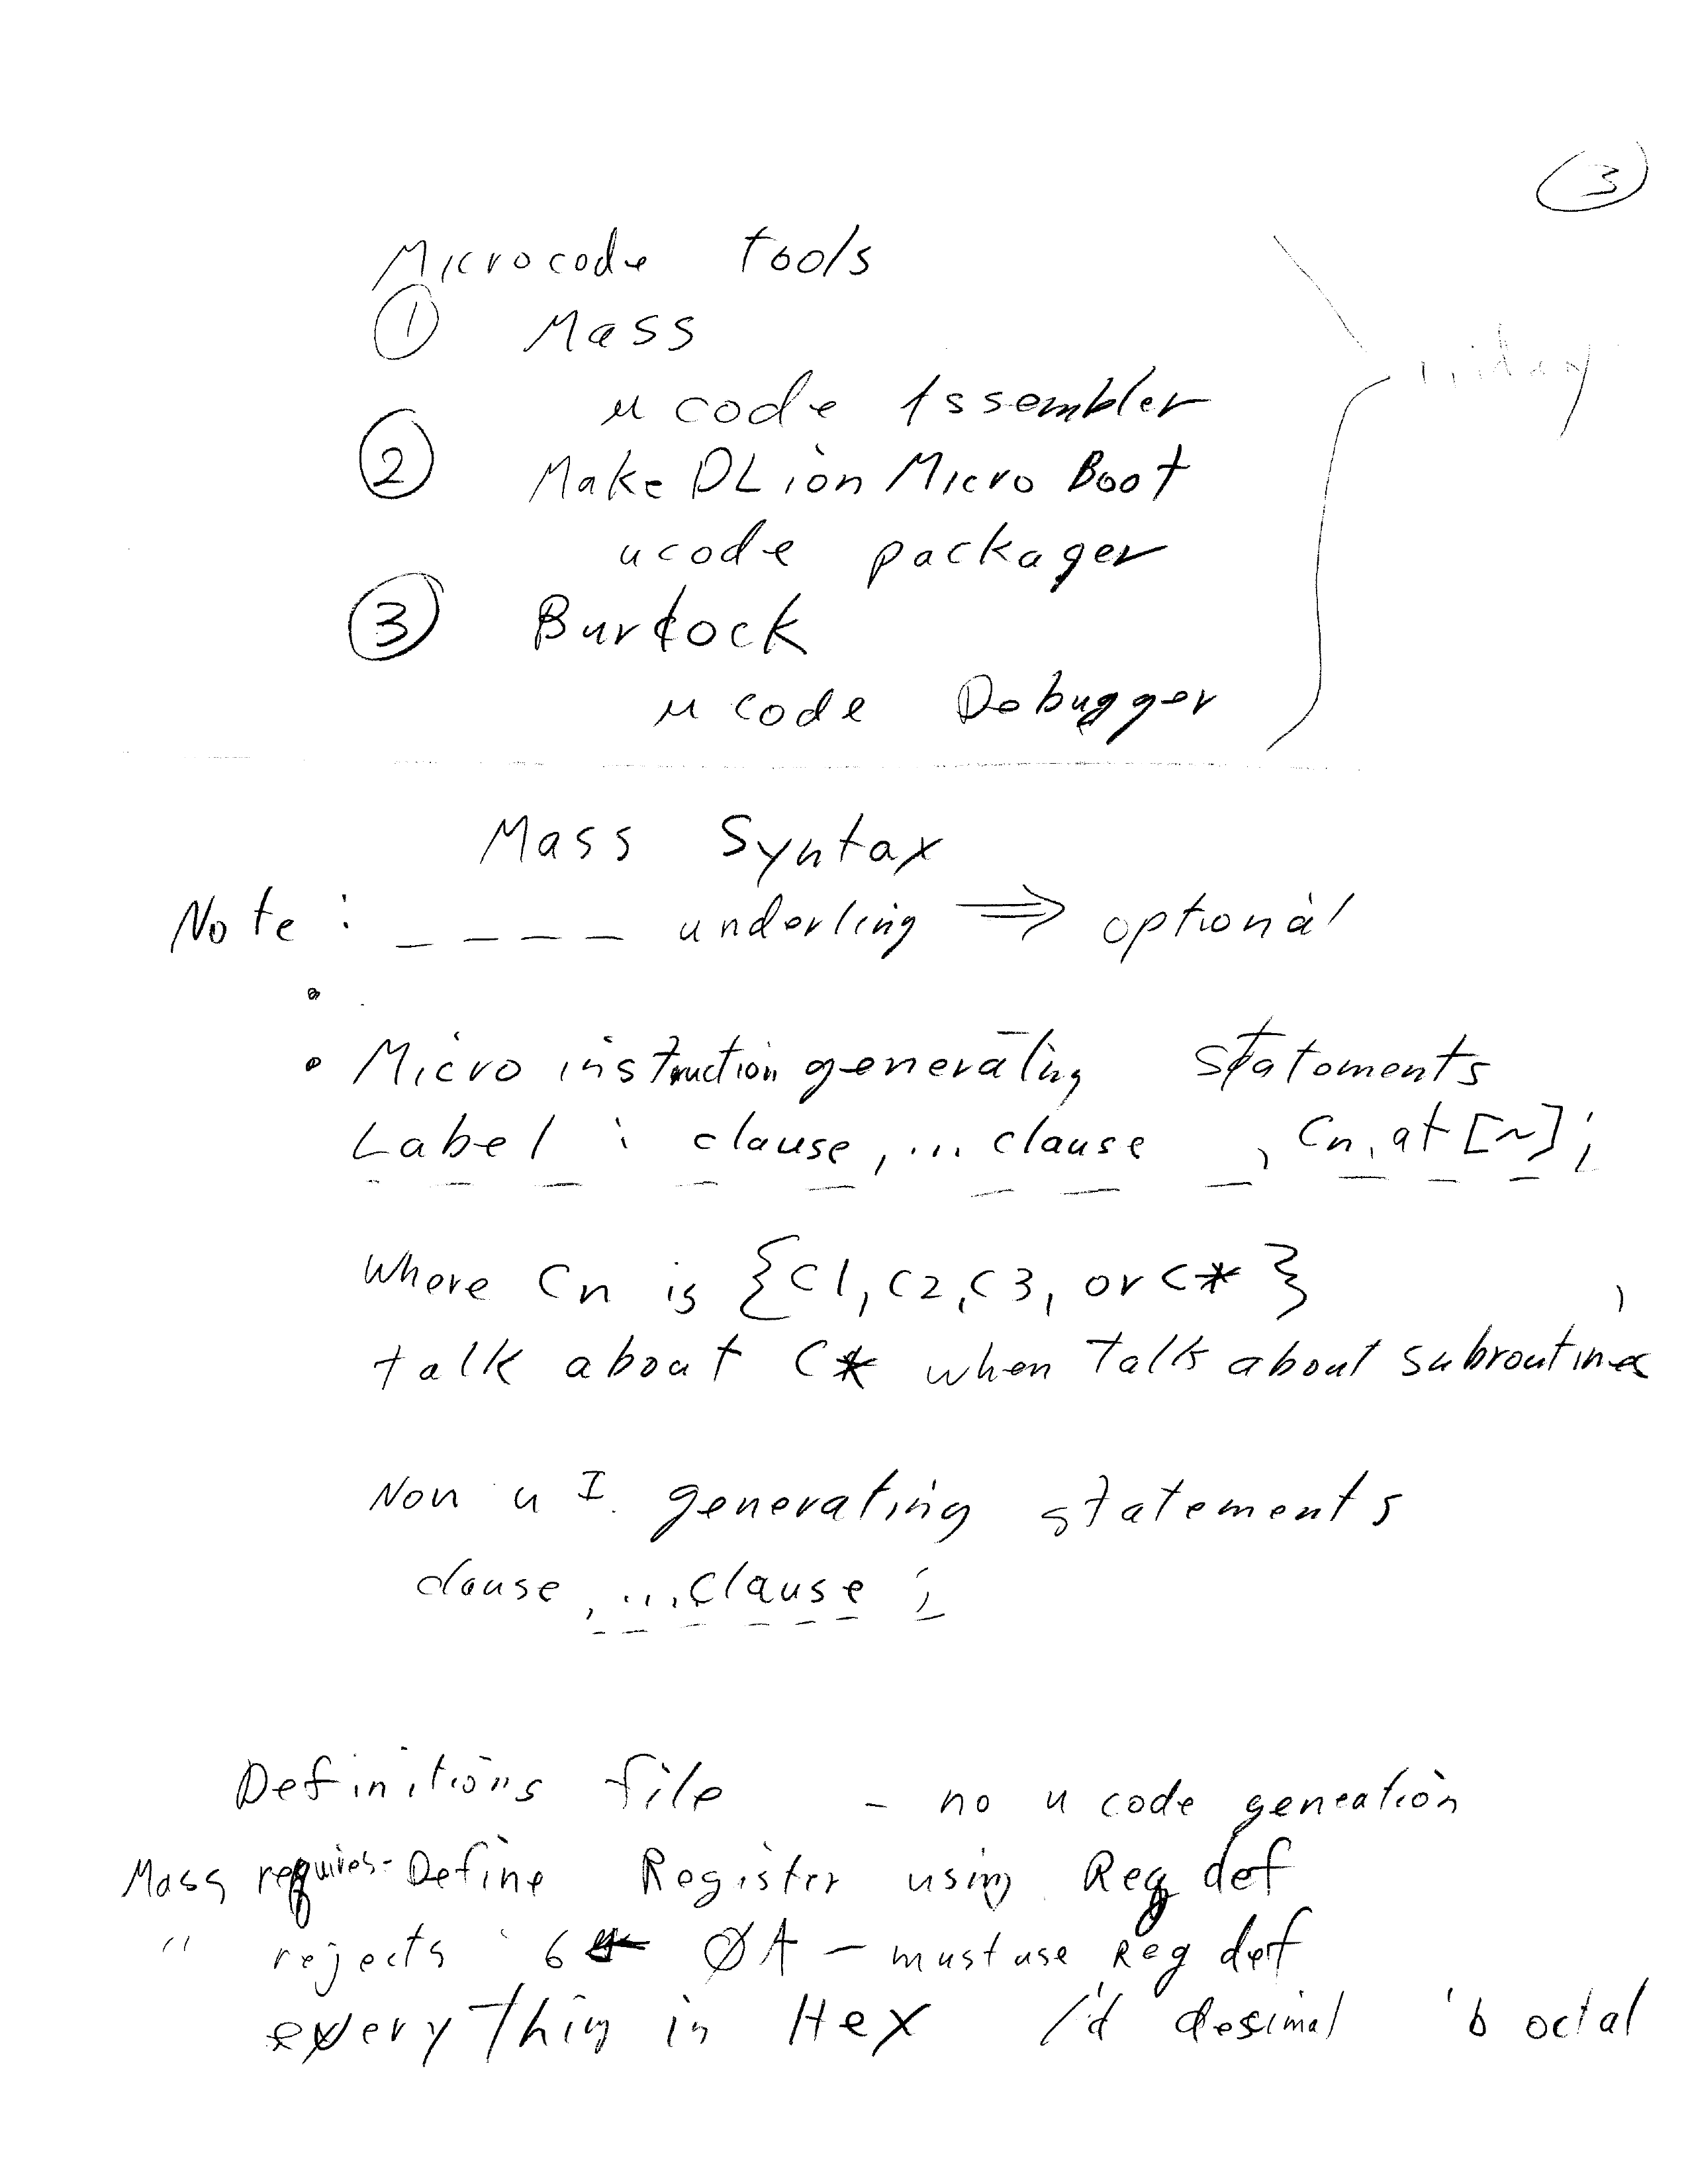 3
Microcode Tools
1 Mass
μ code Assembler
2 Make DLion Micro Boot
ucode packager
3 Burdock
μ code Debugger
Mass Syntax
Note : _ _ _ _ underling ⇒ optional
• Micro instruction generating statements
Label : clause, ... clause , Cn, at [~] ;
Where Cn is {C1, C2, C3, or C*}
talk about C* when talk about subroutines
Non u I. generating statements
clause, ... clause ;
Definitions file - no u code geneation
Mass requires - Define Register using Reg def
" rejects 6 ← ØA - must use Reg def
everything in Hex 'd desimal 'b octal